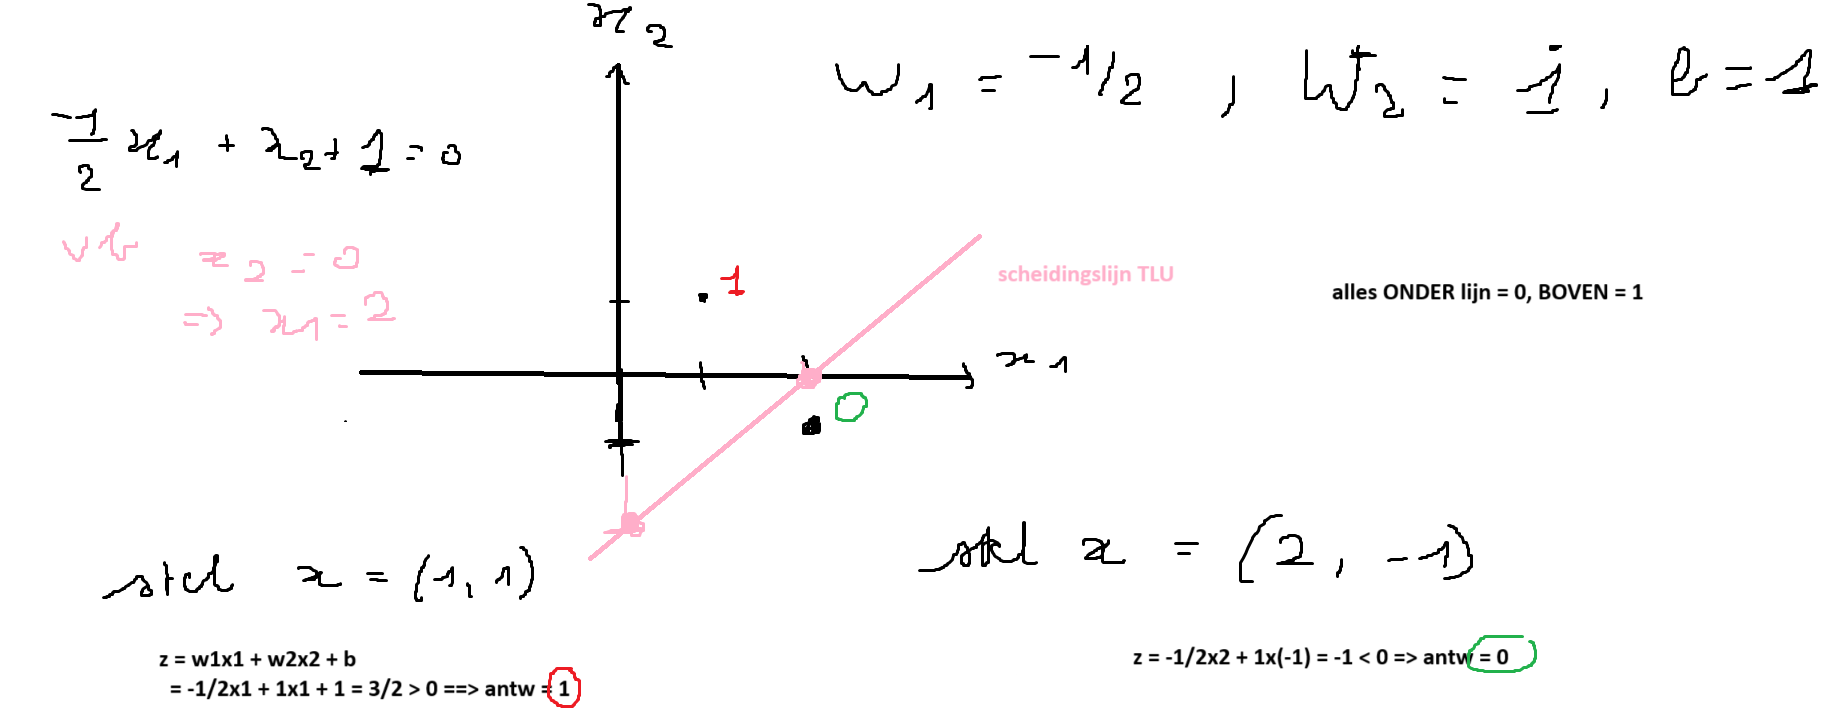 x2
w1 = -1/2 , w2 = 1 , b = 1
-1/2 x1 + x2 + 1 = 0
vb x2 = 0
=> x1 = 2
1
scheidingslijn TLU
alles ONDER lijn = 0, BOVEN = 1
x1
0
stel x = (1, 1)
stel x = (2, -1)
z = w1x1 + w2x2 + b
= -1/2x1 + 1x1 + 1 = 3/2 > 0 ==> antw = 1
z = -1/2x2 + 1x(-1) = -1 < 0 => antw = 0